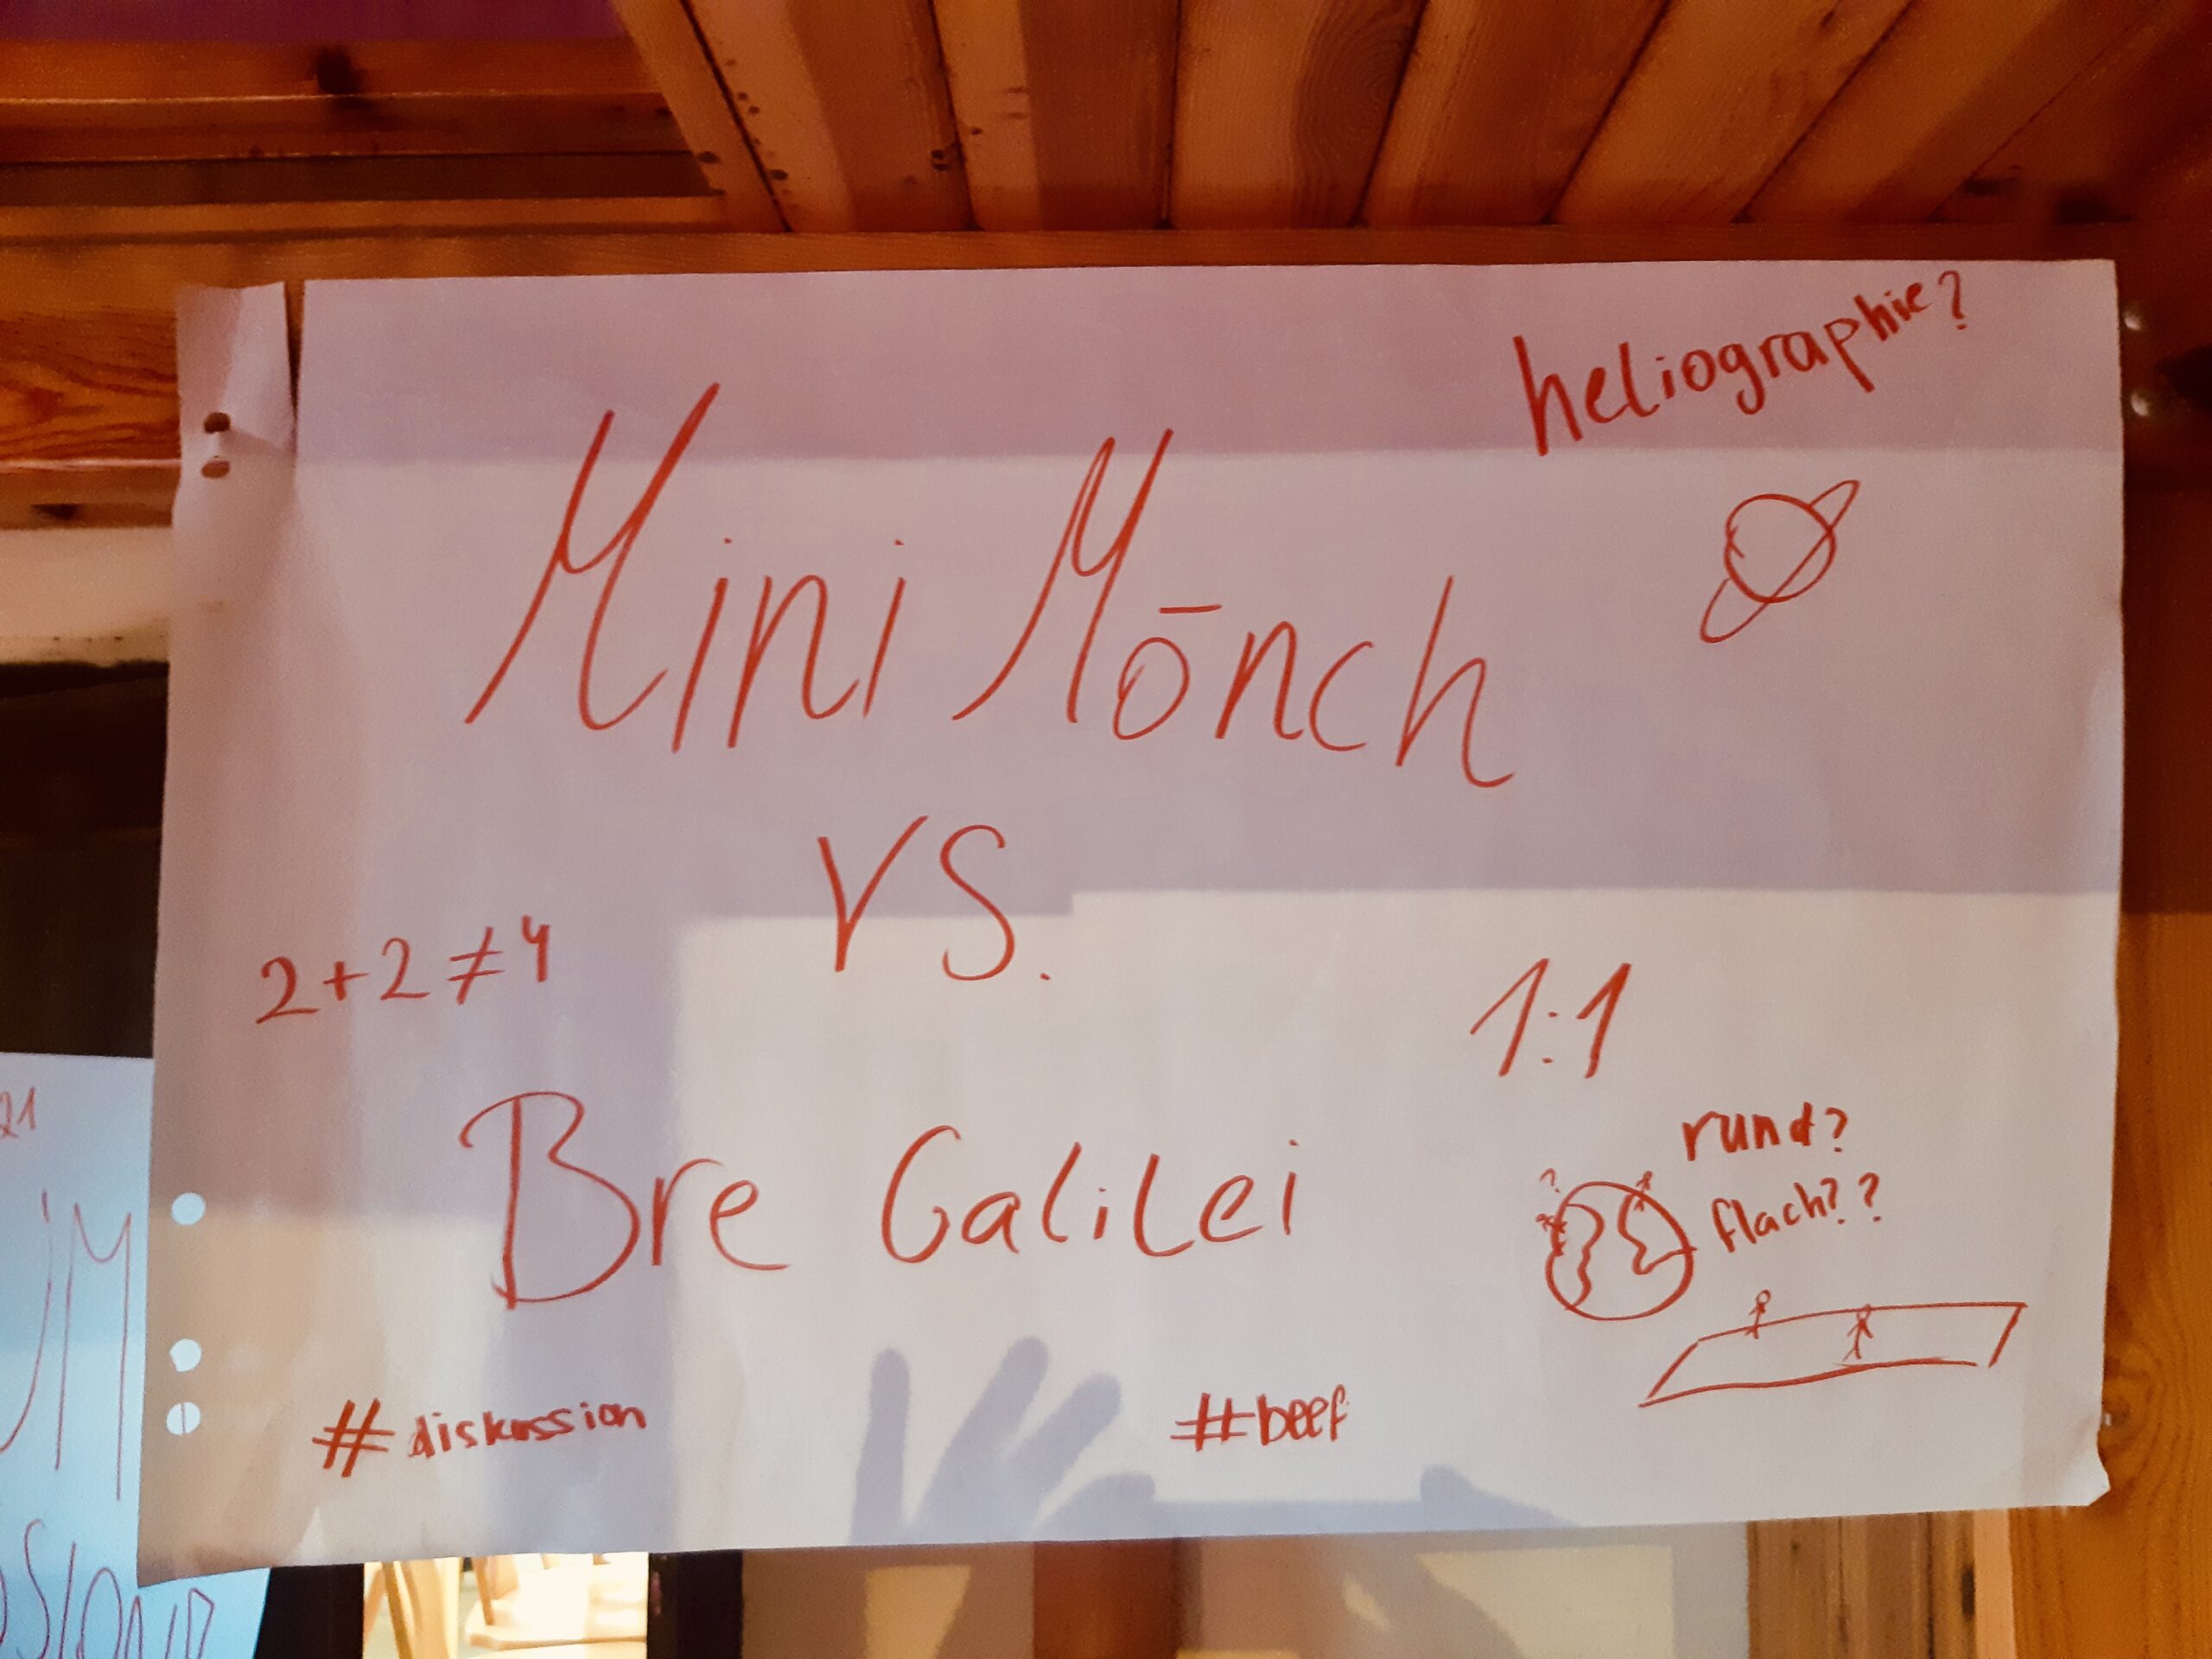 heliographie?
Mini Mōnch
VS.
2+2≠4
1:1
Bre Galilei
rund?
flach??
?
#diskussion
#beef
21